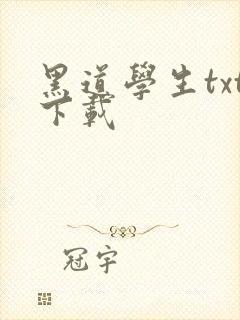 黑道學生txt
下載
冠宇